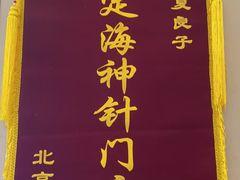 夏良子
定海神针门
北京